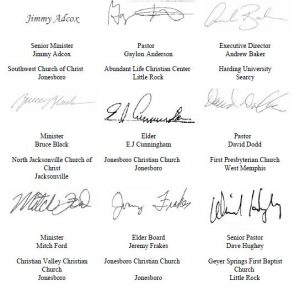 Jimmy Adcox
Senior Minister
Jimmy Adcox
Southwest Church of Christ
Jonesboro
Gaylon Anderson
Pastor
Gaylon Anderson
Abundant Life Christian Center
Little Rock
Andrew Baker
Executive Director
Andrew Baker
Harding University
Searcy
Bruce Black
Minister
Bruce Black
North Jacksonville Church of
Christ
Jacksonville
E.J Cunningham
Elder
E.J Cunningham
Jonesboro Christian Church
Jonesboro
David Dodd
Pastor
David Dodd
First Presbyterian Church
West Memphis
Mitch Ford
Minister
Mitch Ford
Christian Valley Christian
Church
Jonesboro
Jeremy Frakes
Elder Board
Jeremy Frakes
Jonesboro Christian Church
Jonesboro
David Hughey
Senior Pastor
Dave Hughey
Geyer Springs First Baptist
Church
Little Rock